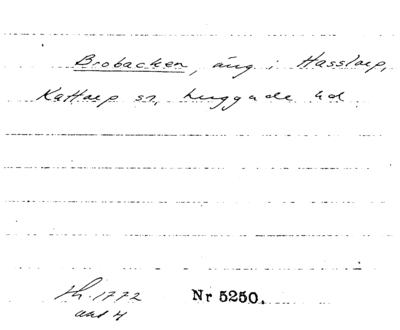 Brobacken, äng i Hasslarp,
Kattarp sn, Luggude hd
th. 1772
Nr 5250.